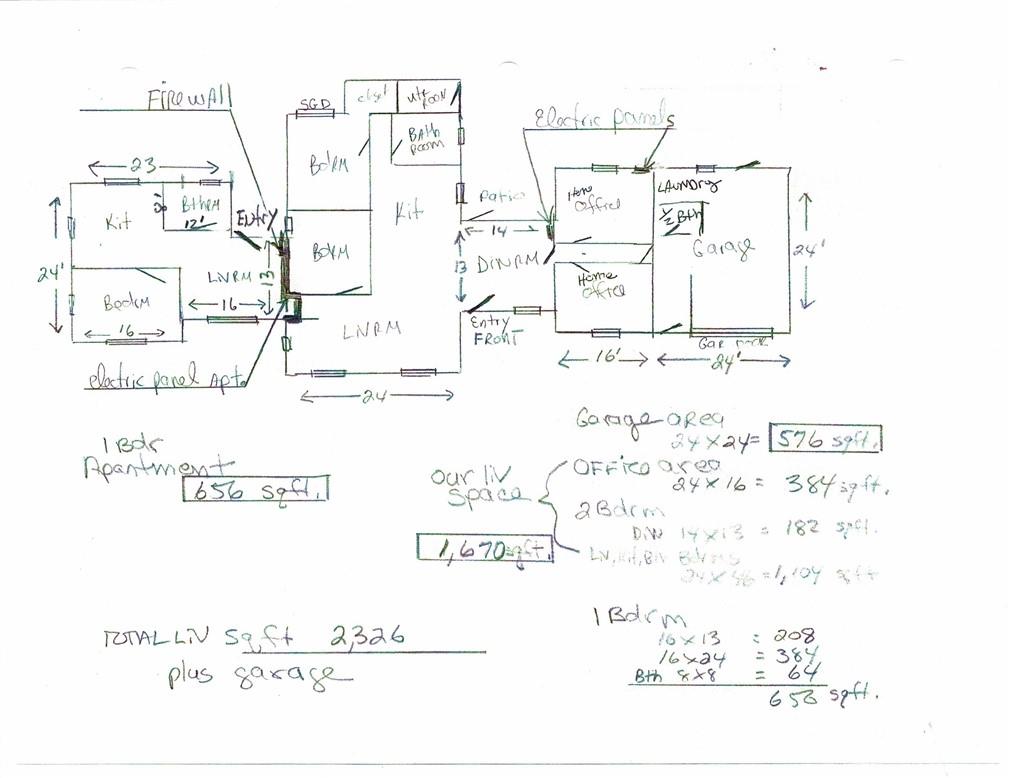 FIREWAll
SGD
closet
utt ROOM
Electric panels
BAth
room
BdRM
23
Kit
8'
BthRM
12'
Entry
Kit
Patio
14
Home
Office
LAUNDRY
1/2 Bth
Garage
24'
24'
LIVRM
13
BdRM
13
DINRM
Home
Office
BedRM
16
16
LIVRM
Entry
FRONT
Gar DOOR
16'
24'
electric panel Apt.
24
1 Bdr
Apartment
656 sqft.
our liv
space
1,670 sqft.
Garage area
24 x 24 = 576 sqft.
OFFICE area
24 x 16 = 384 sqft.
2 Bdrm
DIN 14 x 13 = 182 sqft.
LIV, Kit, Bth Bdrms
24 x 46 = 1,104 sqft
TOTAL LIV Sq.ft 2,326
plus garage
1 Bdrm
16 x 13 = 208
16 x 24 = 384
Bth 8 x 8 = 64
656 sqft.